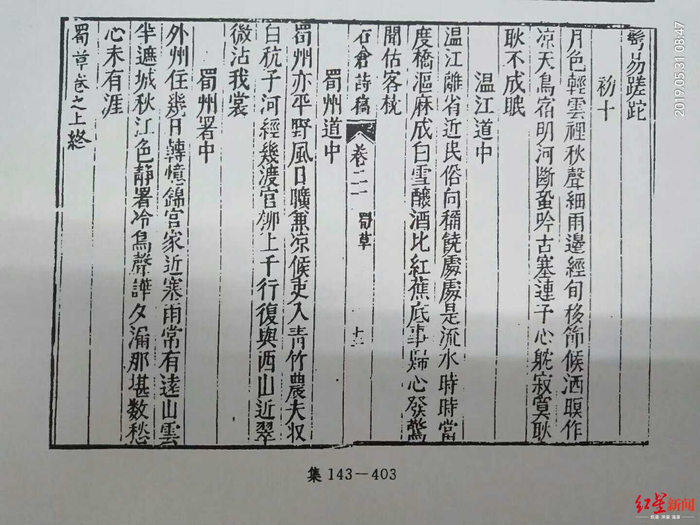 鬢易蹉跎
初十
月色輕雲裡秋聲細雨邊經旬移節候洒暝作
凉天鳥宿明河斷蛩吟古塞連子心躭寂寞耿
耿不成眠
温江道中
温江離省近民俗向稱饒處處是流水時時當
度橋漚麻成白雪釀酒比紅蕉底事歸心發驚
聞估客枕
石倉詩稿 卷二一 蜀草
蜀州道中
蜀州亦平野風日曠兼凉候吏入青竹農夫収
白秔子河經幾渡官柳上千行復與西山近翠
微沾我裳
蜀州署中
外州住幾日轉憶錦官家近塞雨常有遠山雲
半遮城秋江色靜署冷鳥聲譁夕漏那堪数愁
心未有涯
蜀草卷之上終
集 143—403
2019/05/31 08:47
红星新闻